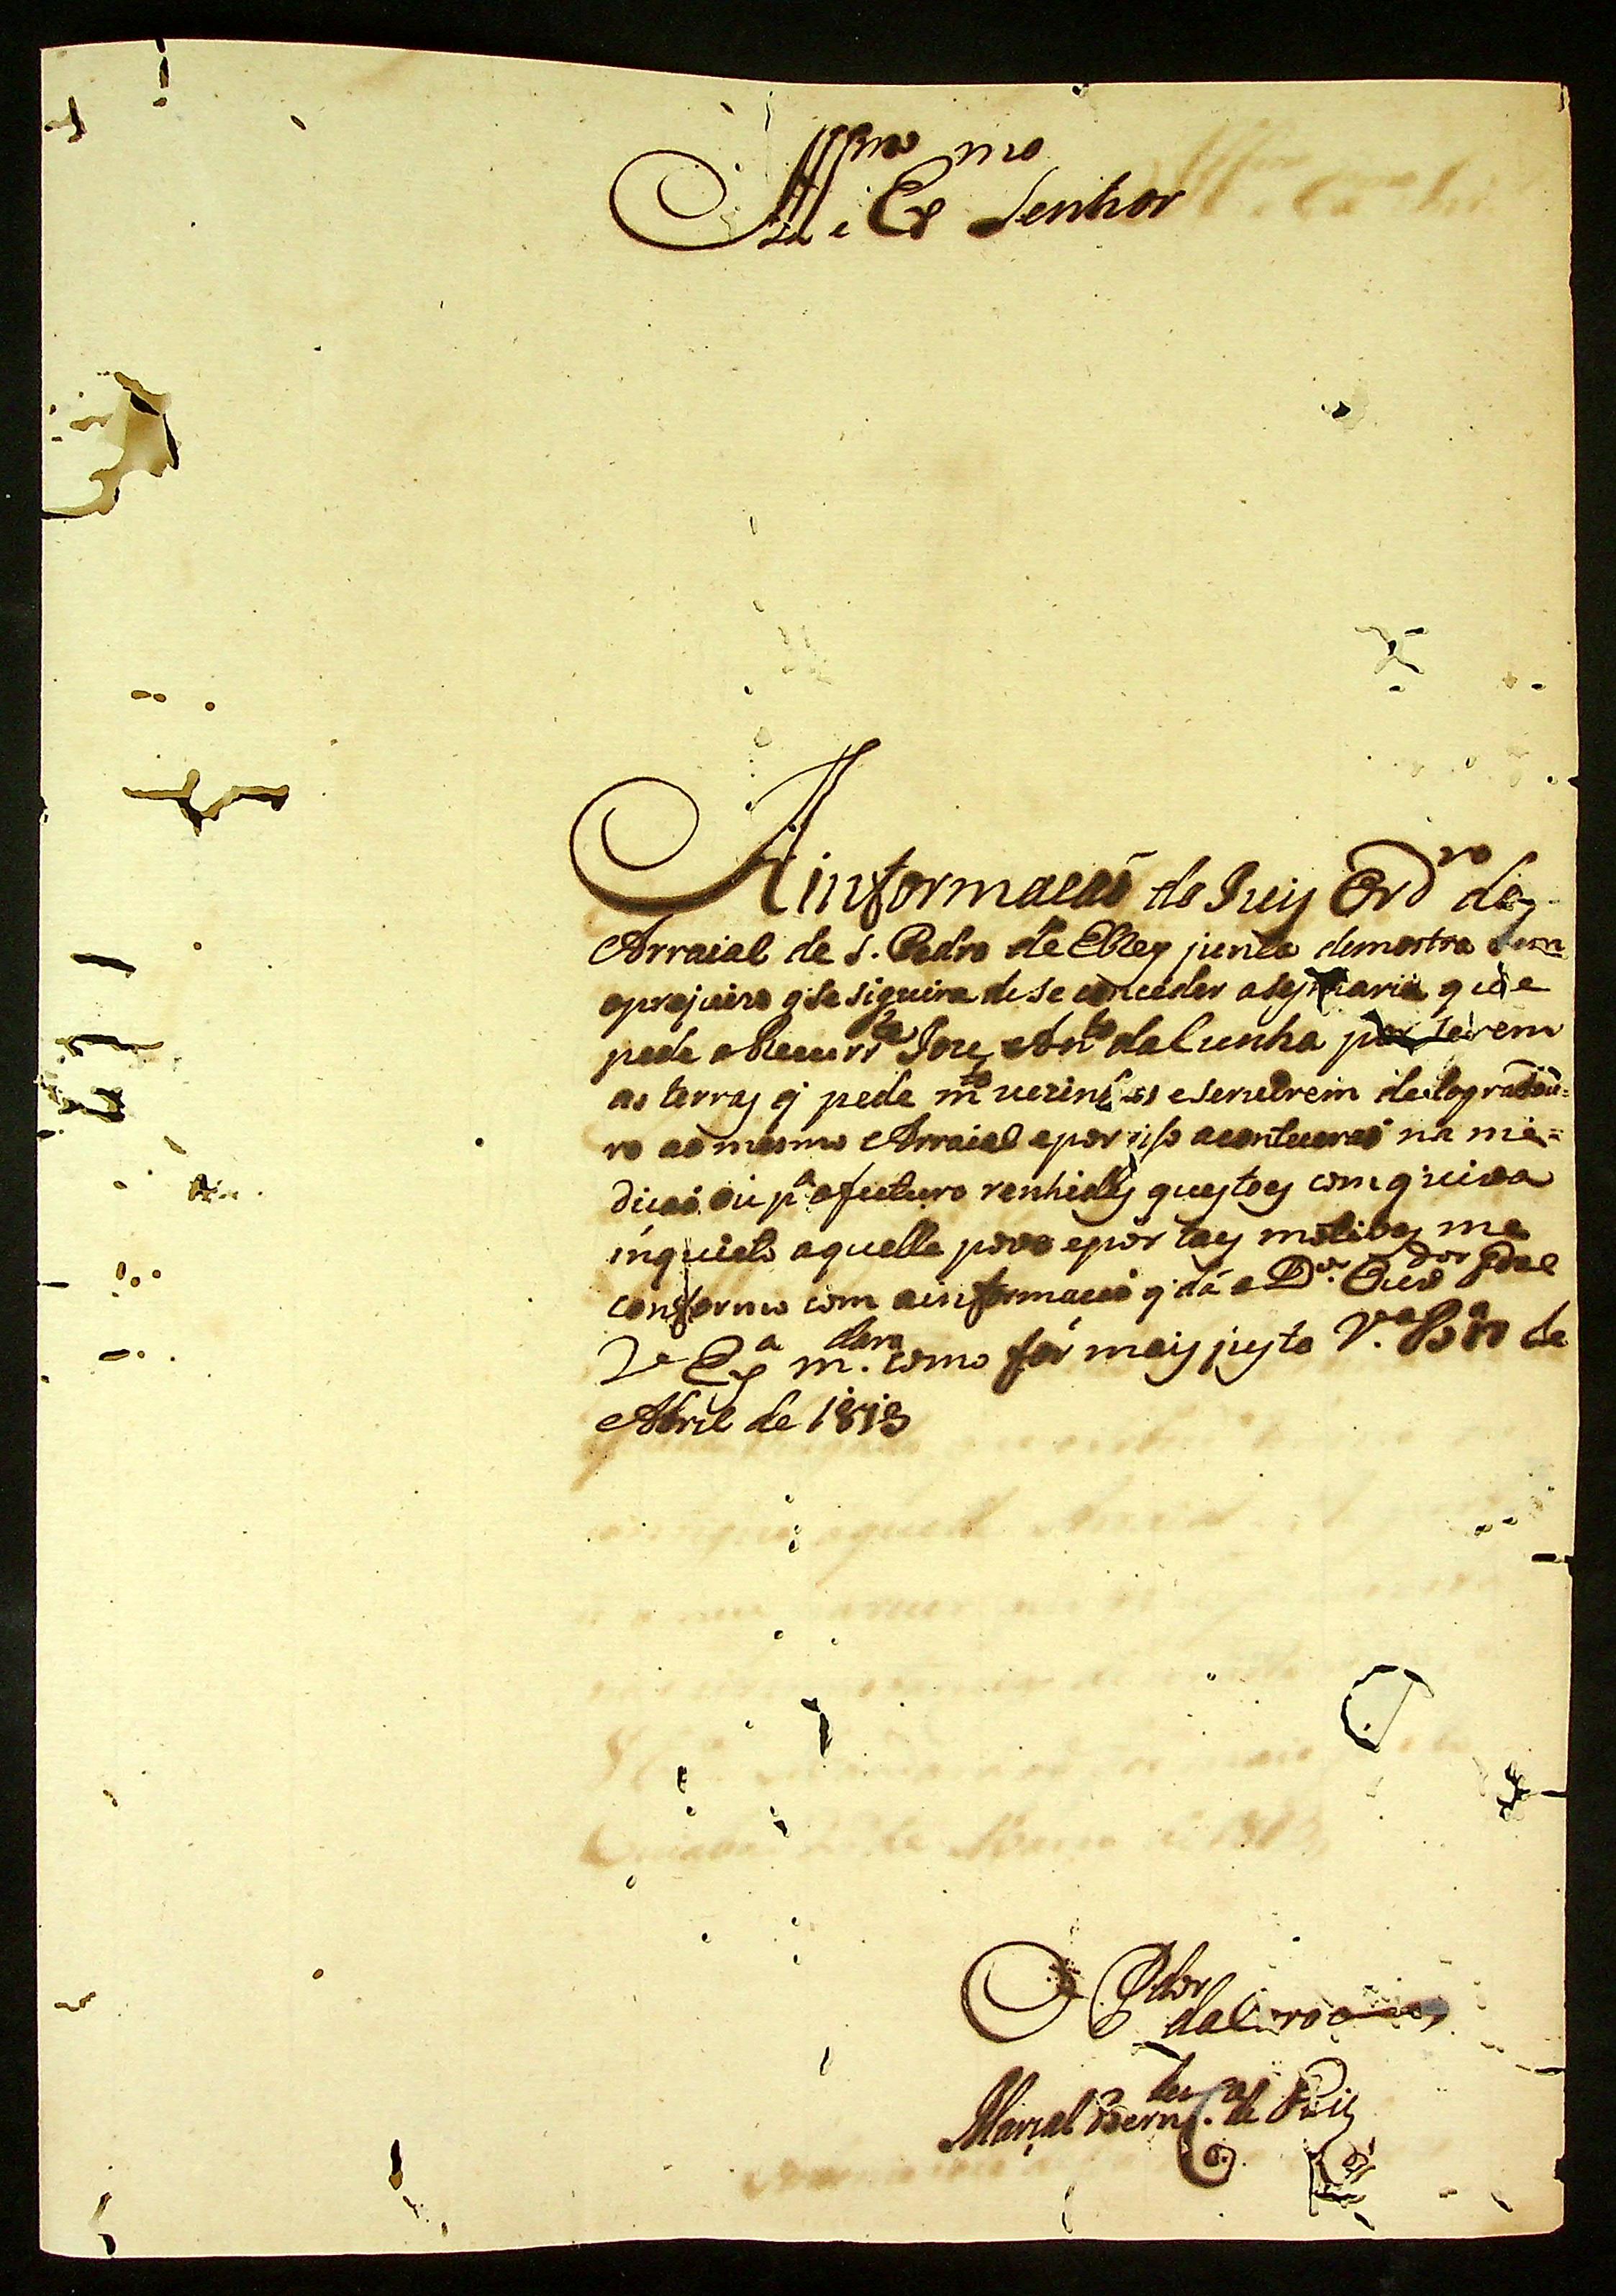 Illmo e Exmo Senhor
A informacaõ do Juiz Ordro do
Arraial de S. Pedro de ElRey junta demostra bem
oprejuizo q̃ se siguira de se conceder a sesmaria que
pede o Recurrte Joze Anto da Cunha por serem
as terras q̃ pede mto vezinhas e servirem de logradou=
ro ao mesmo Arraial epor iso aconteceraõ na me=
dicaõ ou pa ofuturo renhidas questoes com q̃ viva
inquieto aquelle povo epor taes motivos me
conformo com ainformacaõ q̃ dá o Dor Ouvdor gal
V. Exa mdara como for mais justo Va Ba de
Abril de 1813
O Pdor da Croa
Marcal Bernes de